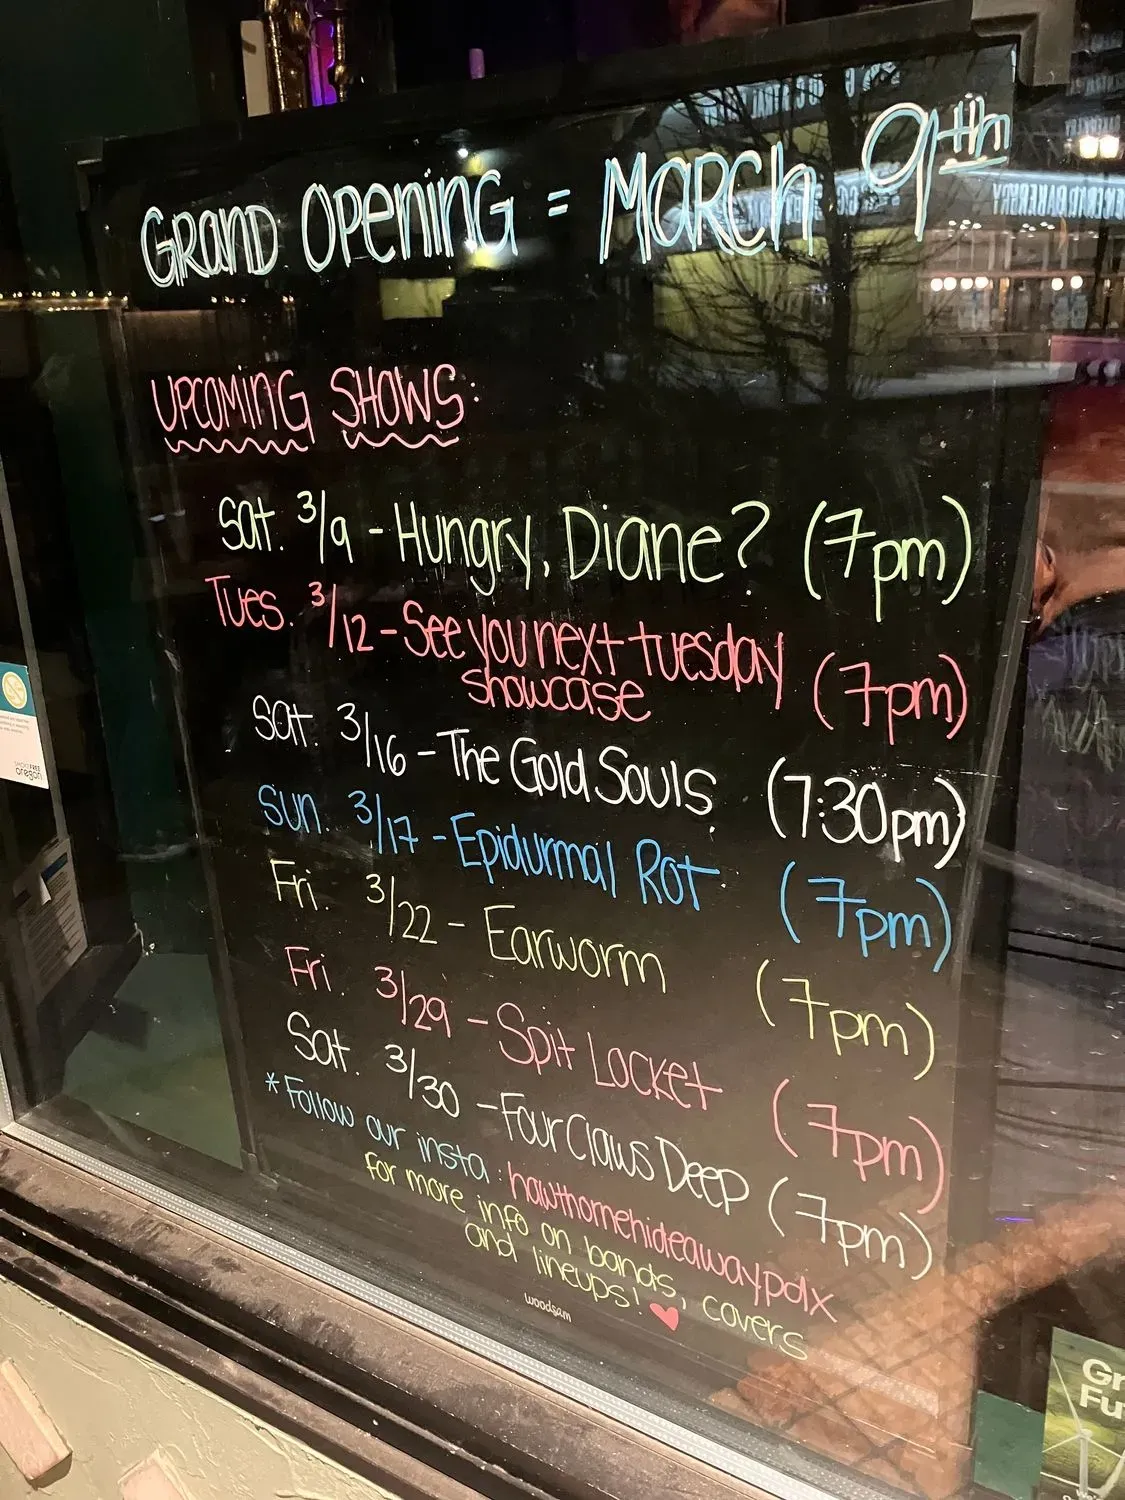 Grand Opening = March 9th
Upcoming Shows:
Sat. 3/9 - Hungry, Diane? (7pm)
Tues. 3/12 - See you next tuesday
showcase (7pm)
Sat. 3/16 - The Gold Souls (7:30pm)
Sun. 3/17 - Epidurmal Rot (7pm)
Fri. 3/22 - Earworm (7pm)
Fri. 3/29 - Spit Locket (7pm)
Sat. 3/30 - Four Claws Deep (7pm)
* Follow our insta: hawthornehideawaypdx
for more info on bands, covers
and lineups! ♥
woodsam
SMOKEFREE
oregon
Gr
Fu